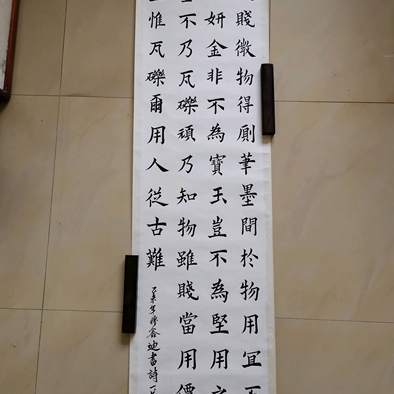 賤微物得厠筆墨間於物用宜
妍金非不為寶玉豈不為堅用之
不乃瓦礫頑乃知物雖賤當用價
惟瓦礫爾用人從古難
迪書詩一